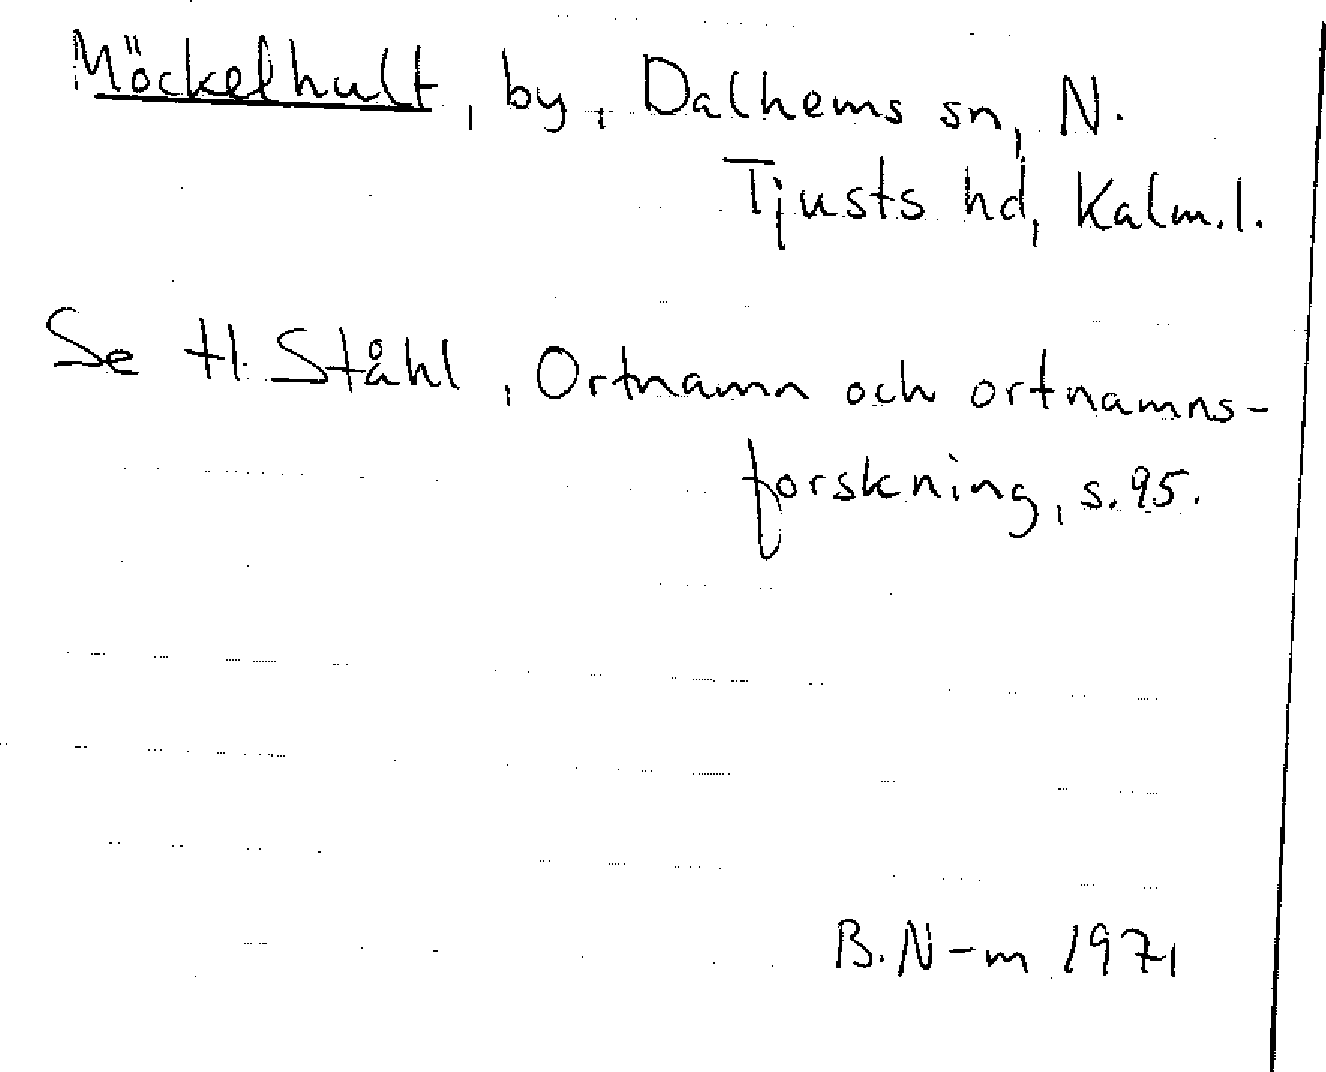 Möckelhult, by, Dalhems sn, N.
Tjusts hd, Kalm.l.
Se H. Ståhl, Ortnamn och ortnamns-
forskning, s. 95.
B. N-m 1971